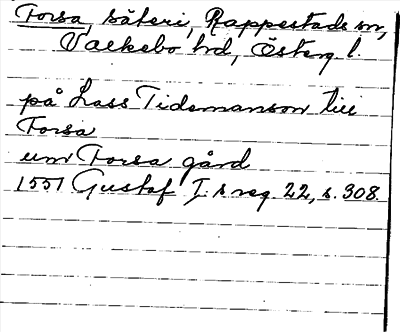 Forsa säteri, Rappestads sn,
Valkebo hd, Österg. l.
på Lass Tidemanson till
Forsa
um Forsa gård
1551 Gustaf I s reg. 22, s. 308.